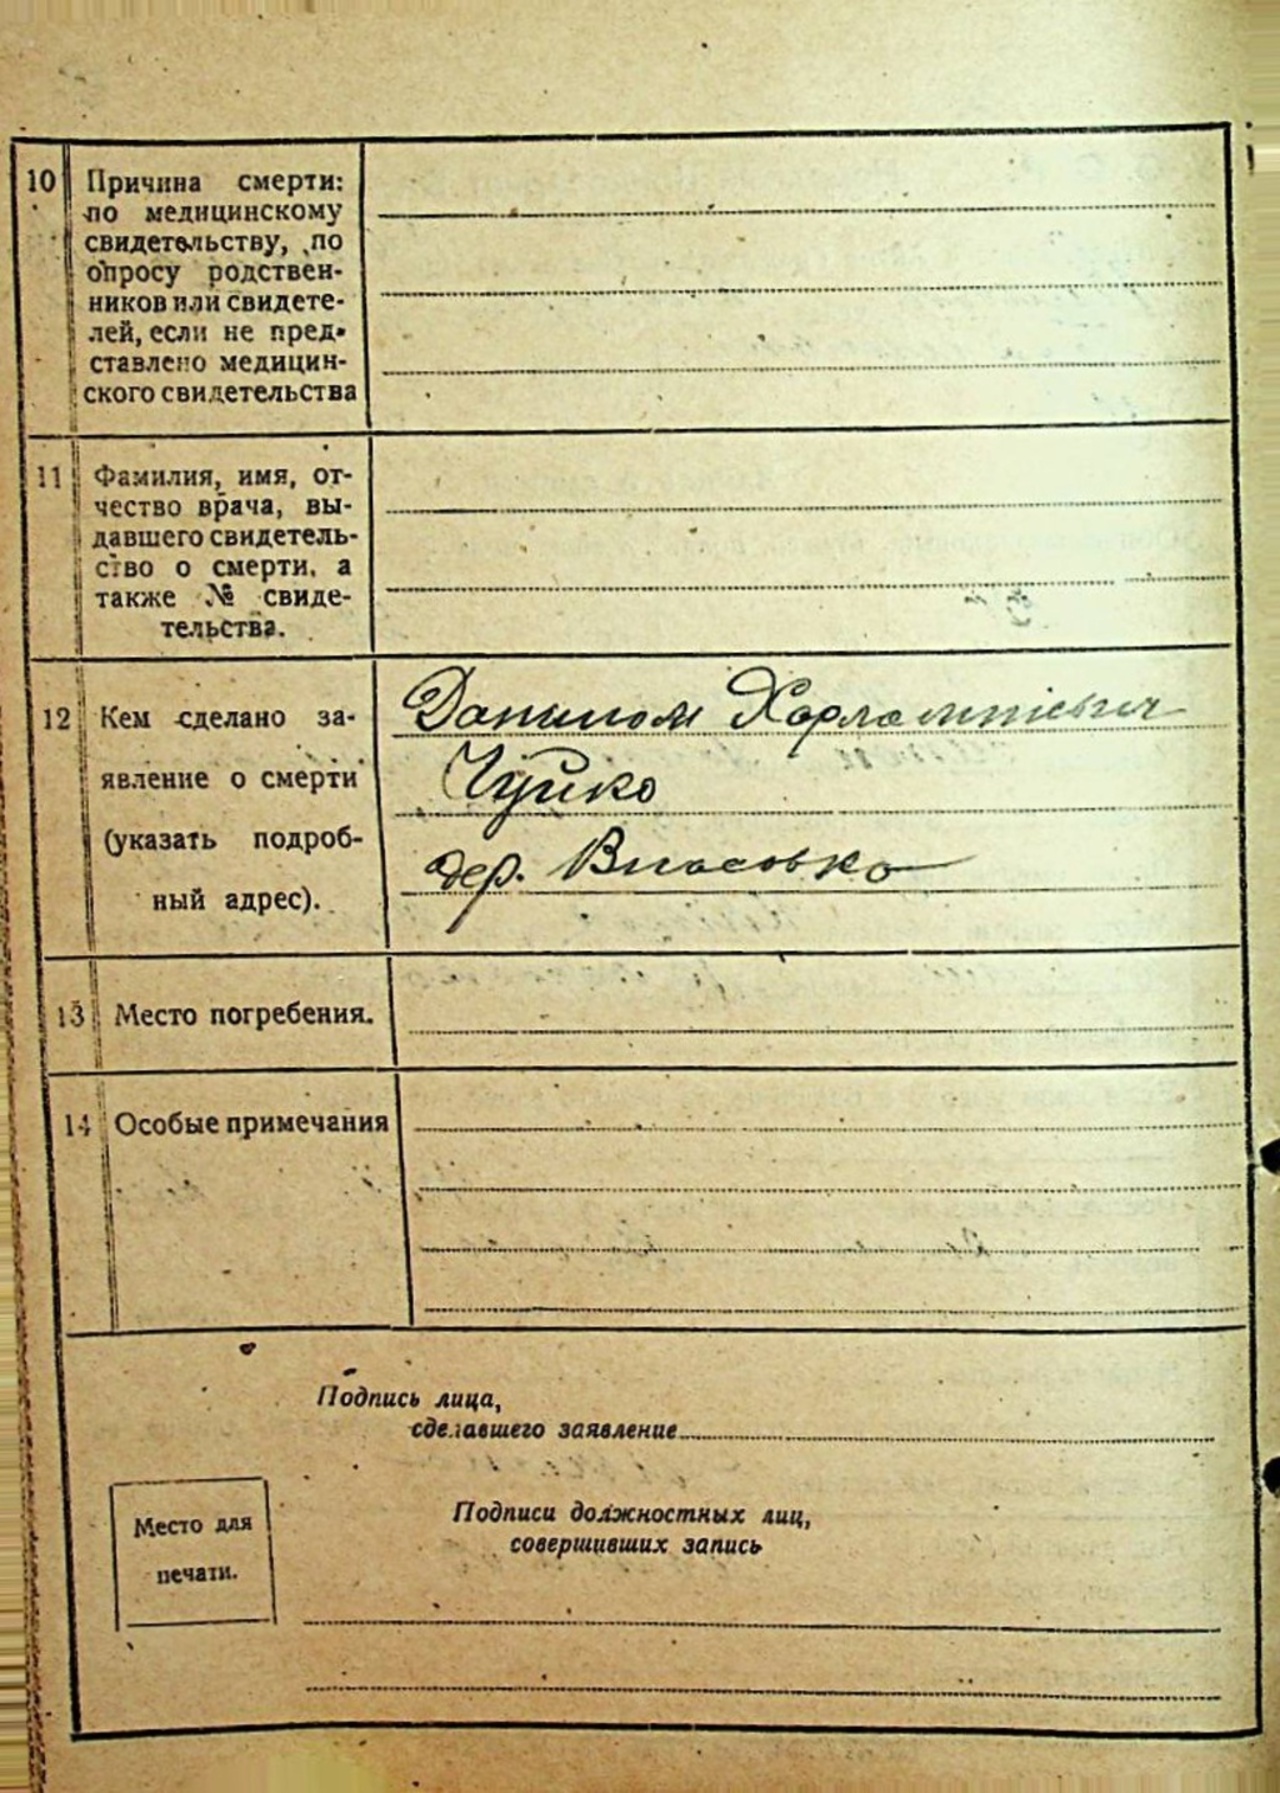 10 Причина смерти:
по медицинскому
свидетельству, по
опросу родствен-
ников или свидете-
лей, если не пред-
ставлено медицин-
ского свидетельства
11 Фамилия, имя, от-
чество врача, вы-
давшего свидетель-
ство о смерти, а
также № свиде-
тельства.
12 Кем сделано за-
явление о смерти
(указать подроб-
ный адрес).
Данилом Харлампиевич
Чуйко
дер. Власовка
13 Место погребения.
14 Особые примечания
Подпись лица,
сделавшего заявление
Место для
печати.
Подписи должностных лиц,
совершивших запись